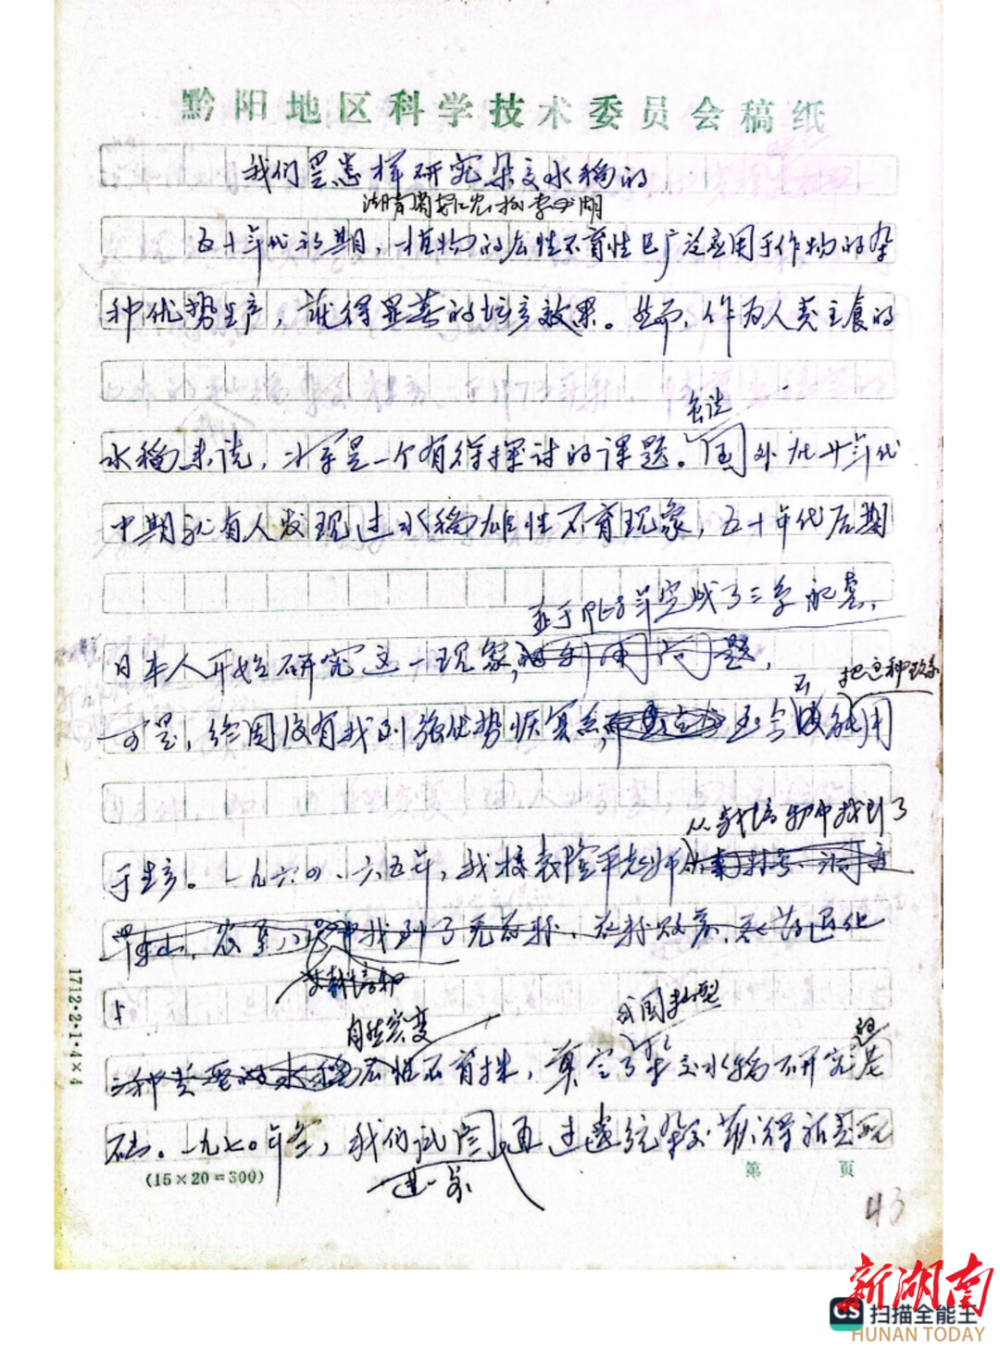 黔阳地区科学技术委员会稿纸
我们是怎样研究杂交水稻的
湖南省安江农校李必湖
五十年代初期，植物的雄性不育性已广泛应用于作物的杂
种优势生产，获得显著的增产效果。然而，作为人类主食的
水稻来说，是一个有待探讨的课题。国外在廿年代
中期就有人发现过水稻雄性不育现象，五十年代后期
并于1968年实现了三系配套，
日本人开始研究这一现象，利用问题，
可是，终因没有找到强优势恢复系，至今
把这种
能用
从栽培稻中找到了
于生产。一九六四、六五年，我校袁隆平老师
找到了无花粉、花粉败育、退化
从栽培稻
自然突变
我国籼型
三种类型的水稻雄性不育株，奠定了杂交水稻研究的基
础。一九七〇年冬，我们试图通过远缘杂交获得
进一步
(15×20=300)
第 页
1712·2·1·4×4
43
新湖南
HUNAN TODAY
CS 扫描全能王